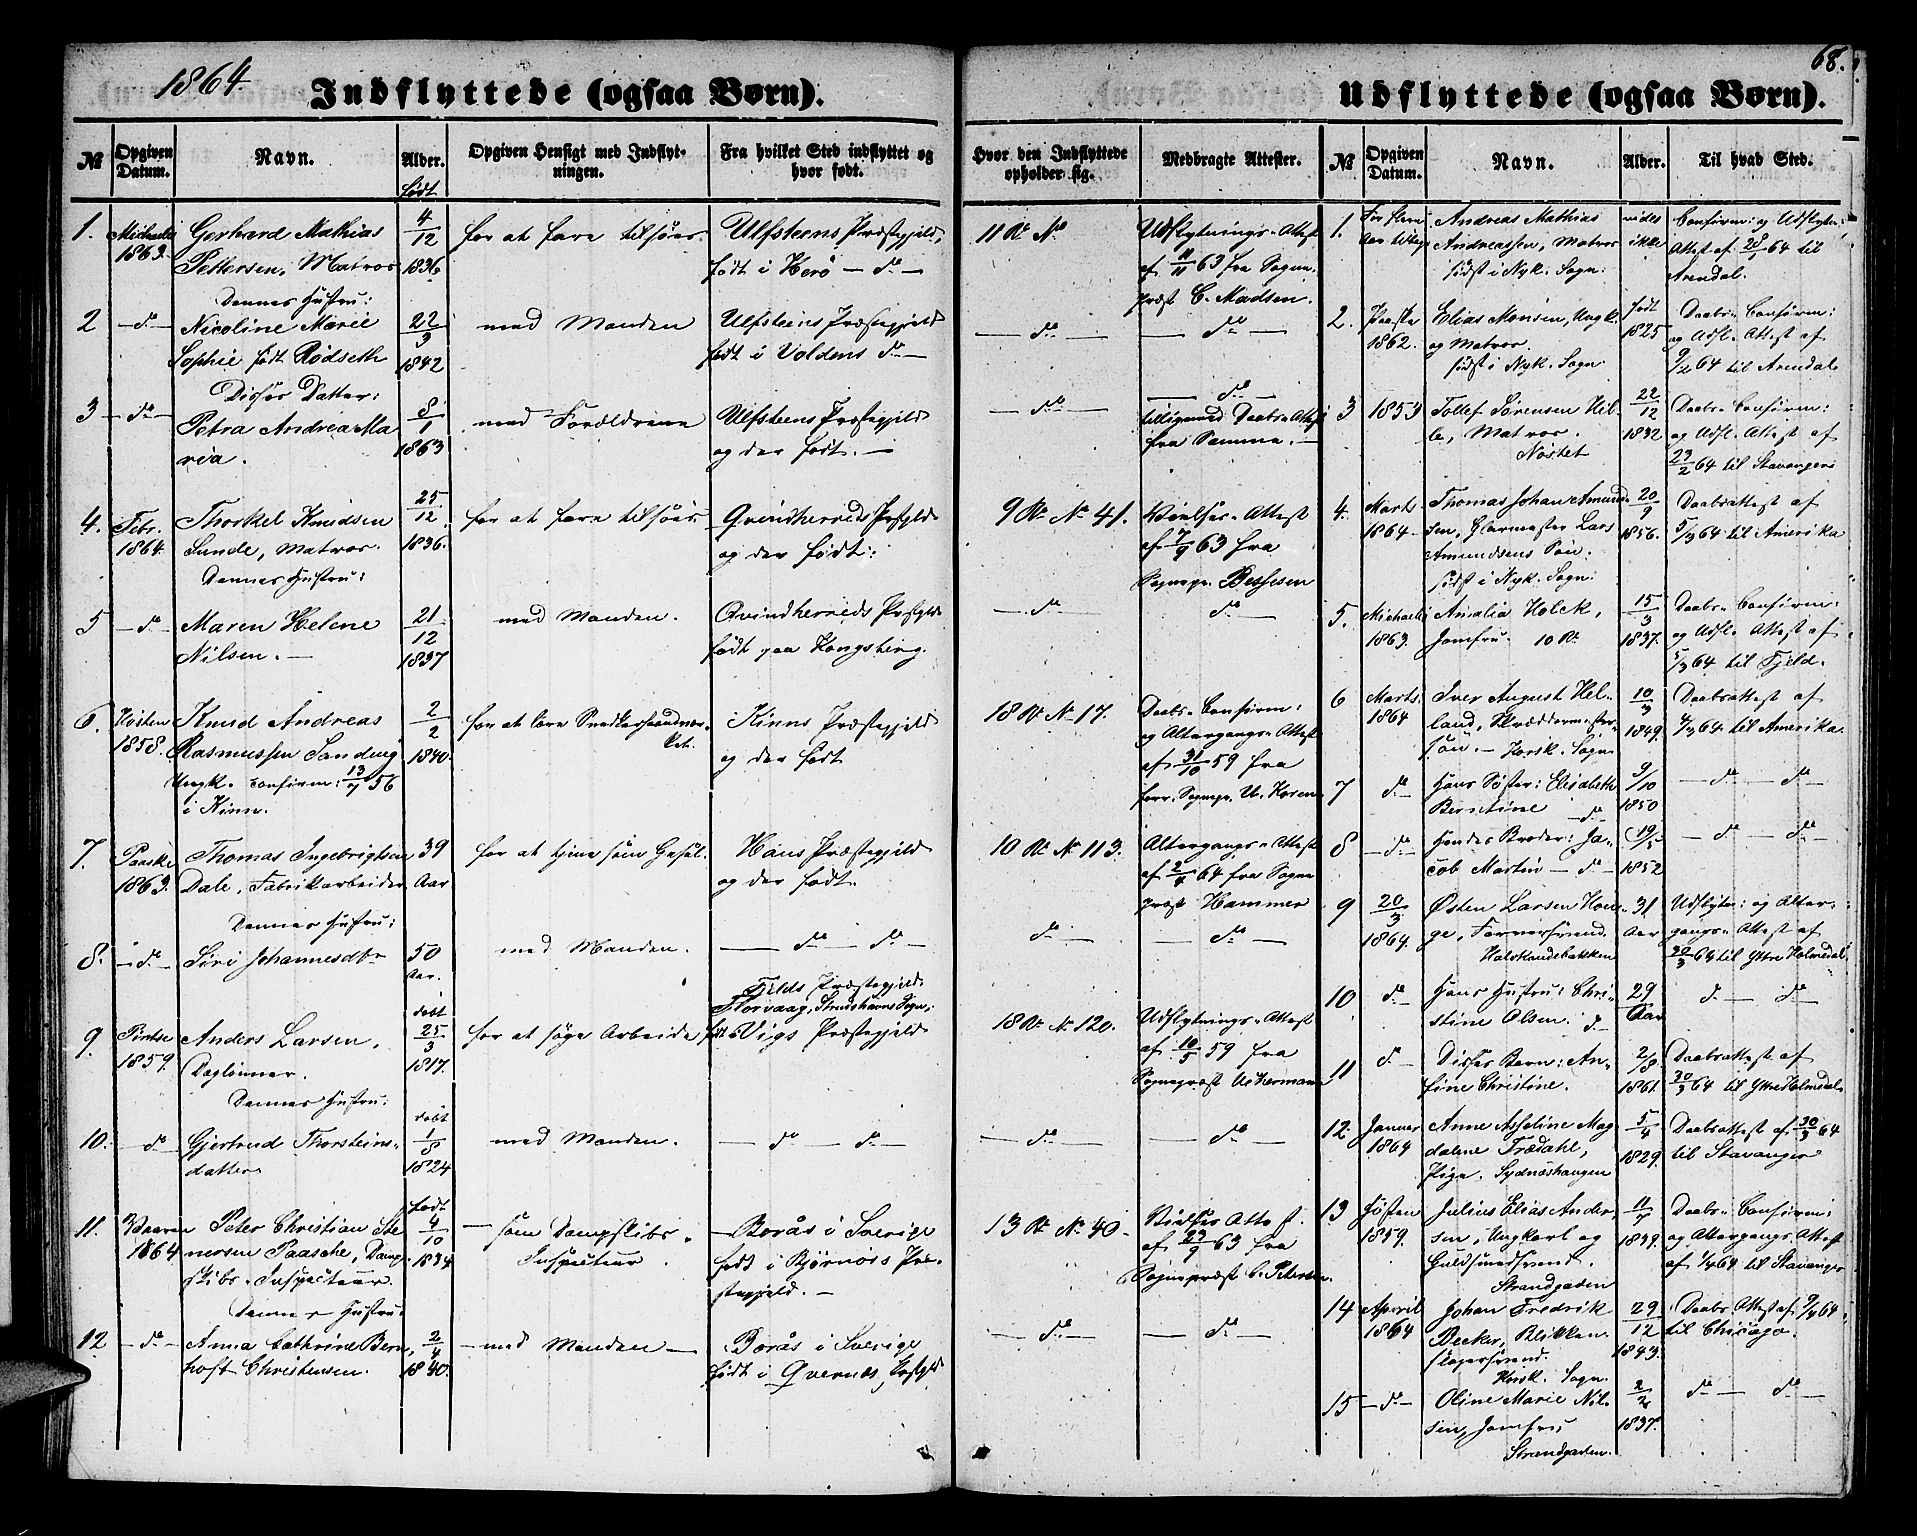 1864.
Indflyttede (ogsaa Børn).
№
Opgiven Datum.
Navn.
Alder.
født
Opgiven Hensigt med Indflyt-
ningen.
Fra hvilket Sted indflyttet og
hvor født.
1.
Michaeli
1863.
Gerhard Mathias
Pettersen, Matros
4/12
1836
for at fare tilsøes.
Ulfsteens Præstegjeld,
født i Herø — do —
Dennes Hustru:
2
— do —
Nicoline Marie
Sophie født Rødseth
22/3
1842
med Manden
Ulfsteins Præstegjeld
født i Voldens do —
Disses Datter:
3
— do —
Petra Andrea Ma
ria.
8/1
1863
med Forældrene
Ulfsteens Præstegjeld
og der født. —
4.
Febr.
1864.
Thorkel Knudsen
Sunde, Matros.
25/12
1836.
for at fare tilsøes.
Qvindherreds Præstgjeld
og der født:
Dennes Hustru:
5
— do —
Maren Helene
Nilsen. —
21/12
1837
med Manden.
Qvindherreds Præstgjeld
født paa Kongsberg.
6.
Høsten
1858.
Knud Andreas
Rasmussen Sandvig
Ungk. confirm: 13/7 56
i Kinn.
2/2
1840.
for at lære Snedkerhaandvær-
ket.
Kinns Præstegjeld
og der født
7.
Paaske
1863.
Thomas Ingebrigtsen
Dale, Fabrikarbeider
39
Aar
for at tjene som Gesel.
Haus Præstegjeld
og der født.
Dennes Hustru:
8.
— do —
Siri Johannesdtr
50
Aar.
med Manden.
— do — do —
Fjelds Præstegjeld
9.
Pintse
1859.
Anders Larsen,
Dagleinner.
døbt
25/3
1817.
for at søge Arbeide
født Vigs Præstegjeld
Dennes Hustru:
10.
— do
Gjertrud Thorsteins-
datter
døbt
1/8
1824
med Manden.
— do — do —
11.
Vaaren
1864
Peter Christian Ste
nersen Paasche, Damp-
skibs-Inspecteur.
født
4/10
1834
— som Dampskibs-
Inspecteur.
Borås i Sverige
født i Bjørnørs Præ-
stegjeld. —
Dennes Hustru:
12
— do —
Anna Cathrine Bern
hoft Christensen.
2/4
1840.
— med Manden —
Borås i Sverige
født i Qvernes Præstgjeld
68.
Udflyttede (ogsaa Børn).
Hvor den Indflyttede
opholder sig.
Medbragte Attester.
№
Opgiven
Datum.
Navn.
Alder.
Til hvad Sted.
11 Rd No
Udflytnings-Attest
af 11/11 63 fra Sogne-
præst C. Madsen.
— do —
— do —
— do —
— do —
tilligemed Daabs-Attest
fra Samme. —
9 Rd No 41.
Vielses-Attest
af 7/9 63 fra
Sognepr. Bessesen
— do
do —
18 Rd No 17.
Daabs- Confirm:
og Altergangs-Attest
af 31/10 59 fra
10 Rd No 113.
Altergangs-Attest
af 2/4 64 fra Sogne
præst Hammer
do —
— do —
18 Rd No 120.
Udflytnings-Attest
af 10/5 59 fra
Sognepræst Uckerman
— do —
— do —
13 Rd No 40.
Vielses Attest.
af 23/9 63 fra
Sognepræst C. Petersen.
— do —
— do —
1.
Andreas Mathias
Andreassen, Matros
født i Nyk. Sogn:
vides
ikke
Confirm: og Udflytn:
Attest af 28/1 64 til
Arendal.
2.
Paaske
1862.
Elias Monsen, Ungk.
og Matros.
født i Nyk. Sogn
født
1825
Daabs- Confirm:
og Udfl. Attest af
9/2 64 til Arendal.
3
1853
Tollef Sørensen Hil-
le, Matros.
Nøstet
22/12
1832
Daabs- Confirm:
og Udfl. Attest af
23/2 64 til Stavanger
4.
Marts
1864
Thomas Johan Amund-
sen, Glarmester Lars
Amundsens Søn.
født i Nyk. Sogn.
20/9
1856.
Daabsattest af
5/3 64 til Amerika
5.
Michaeli
1863.
Amalia Holck,
Jomfru. 10 Rd
15/3
1837.
Daabs- Confirm:
og Udfl. Attest af
5/3 64 til Fjeld.
6
Marts
1864
Iver August Hel-
land, Skræddermester-
søn. — Korsk. Sogn
10/3
1849.
Daabsattest af
4/3 64 til Amerika.
7
do —
Hans Søster: Elisabeth
Berntine — do —
9/10
1850
— do — do —
8
— do —
Hendes Broder: Ja-
cob Martin — do —
19/5
1852
— do — do —
9
20/3
1864.
Østen Larsen Hau-
ge, Farversvend.
31
Aar
Udflytn: og Alter-
gangs-Attest af
30/3 64 til Yttre Holmedal
10
do —
Hans Hustru: Chri-
stine Olsen. do —
29
Aar
do — do —
11
do —
Disses Barn: An-
sine Christine.
2/8
1861.
Daabsattest af
30/3 64 til Yttre Holmedal
12.
Januar
1864
Anne Asseline Mag
dalene Frædahl,
Pige. Sydnæshaugen
5/4
1829.
Daabsattest af 30/3 64
til Stavanger
13
Høsten
1859.
Julius Elias Ander-
sen, Ungkarl og
Guldsmedsvend.
Strandgaden
11/7
1839.
Daabs- Confirm:
og Altergangs-Attest
af 1/4 64 til Stavanger
14
April
1864
Johan Fredrik
Becker, Blikken-
slagersvend.
Korsk. Sogn.
29/12
1843.
Daabs-Attest af 9/4 64
til Chicago.
15
— do —
Oline Marie Nil-
sen, Jomfru
Strandgaden.
2/2
1837.
do — do —